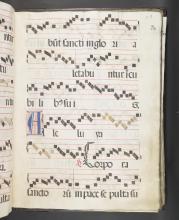 bunt sancti in glo ri a
letabu ntur i cu
bi li bus su i s
A le lu ya
Corpo ra
sancto rum in pace se pulta su